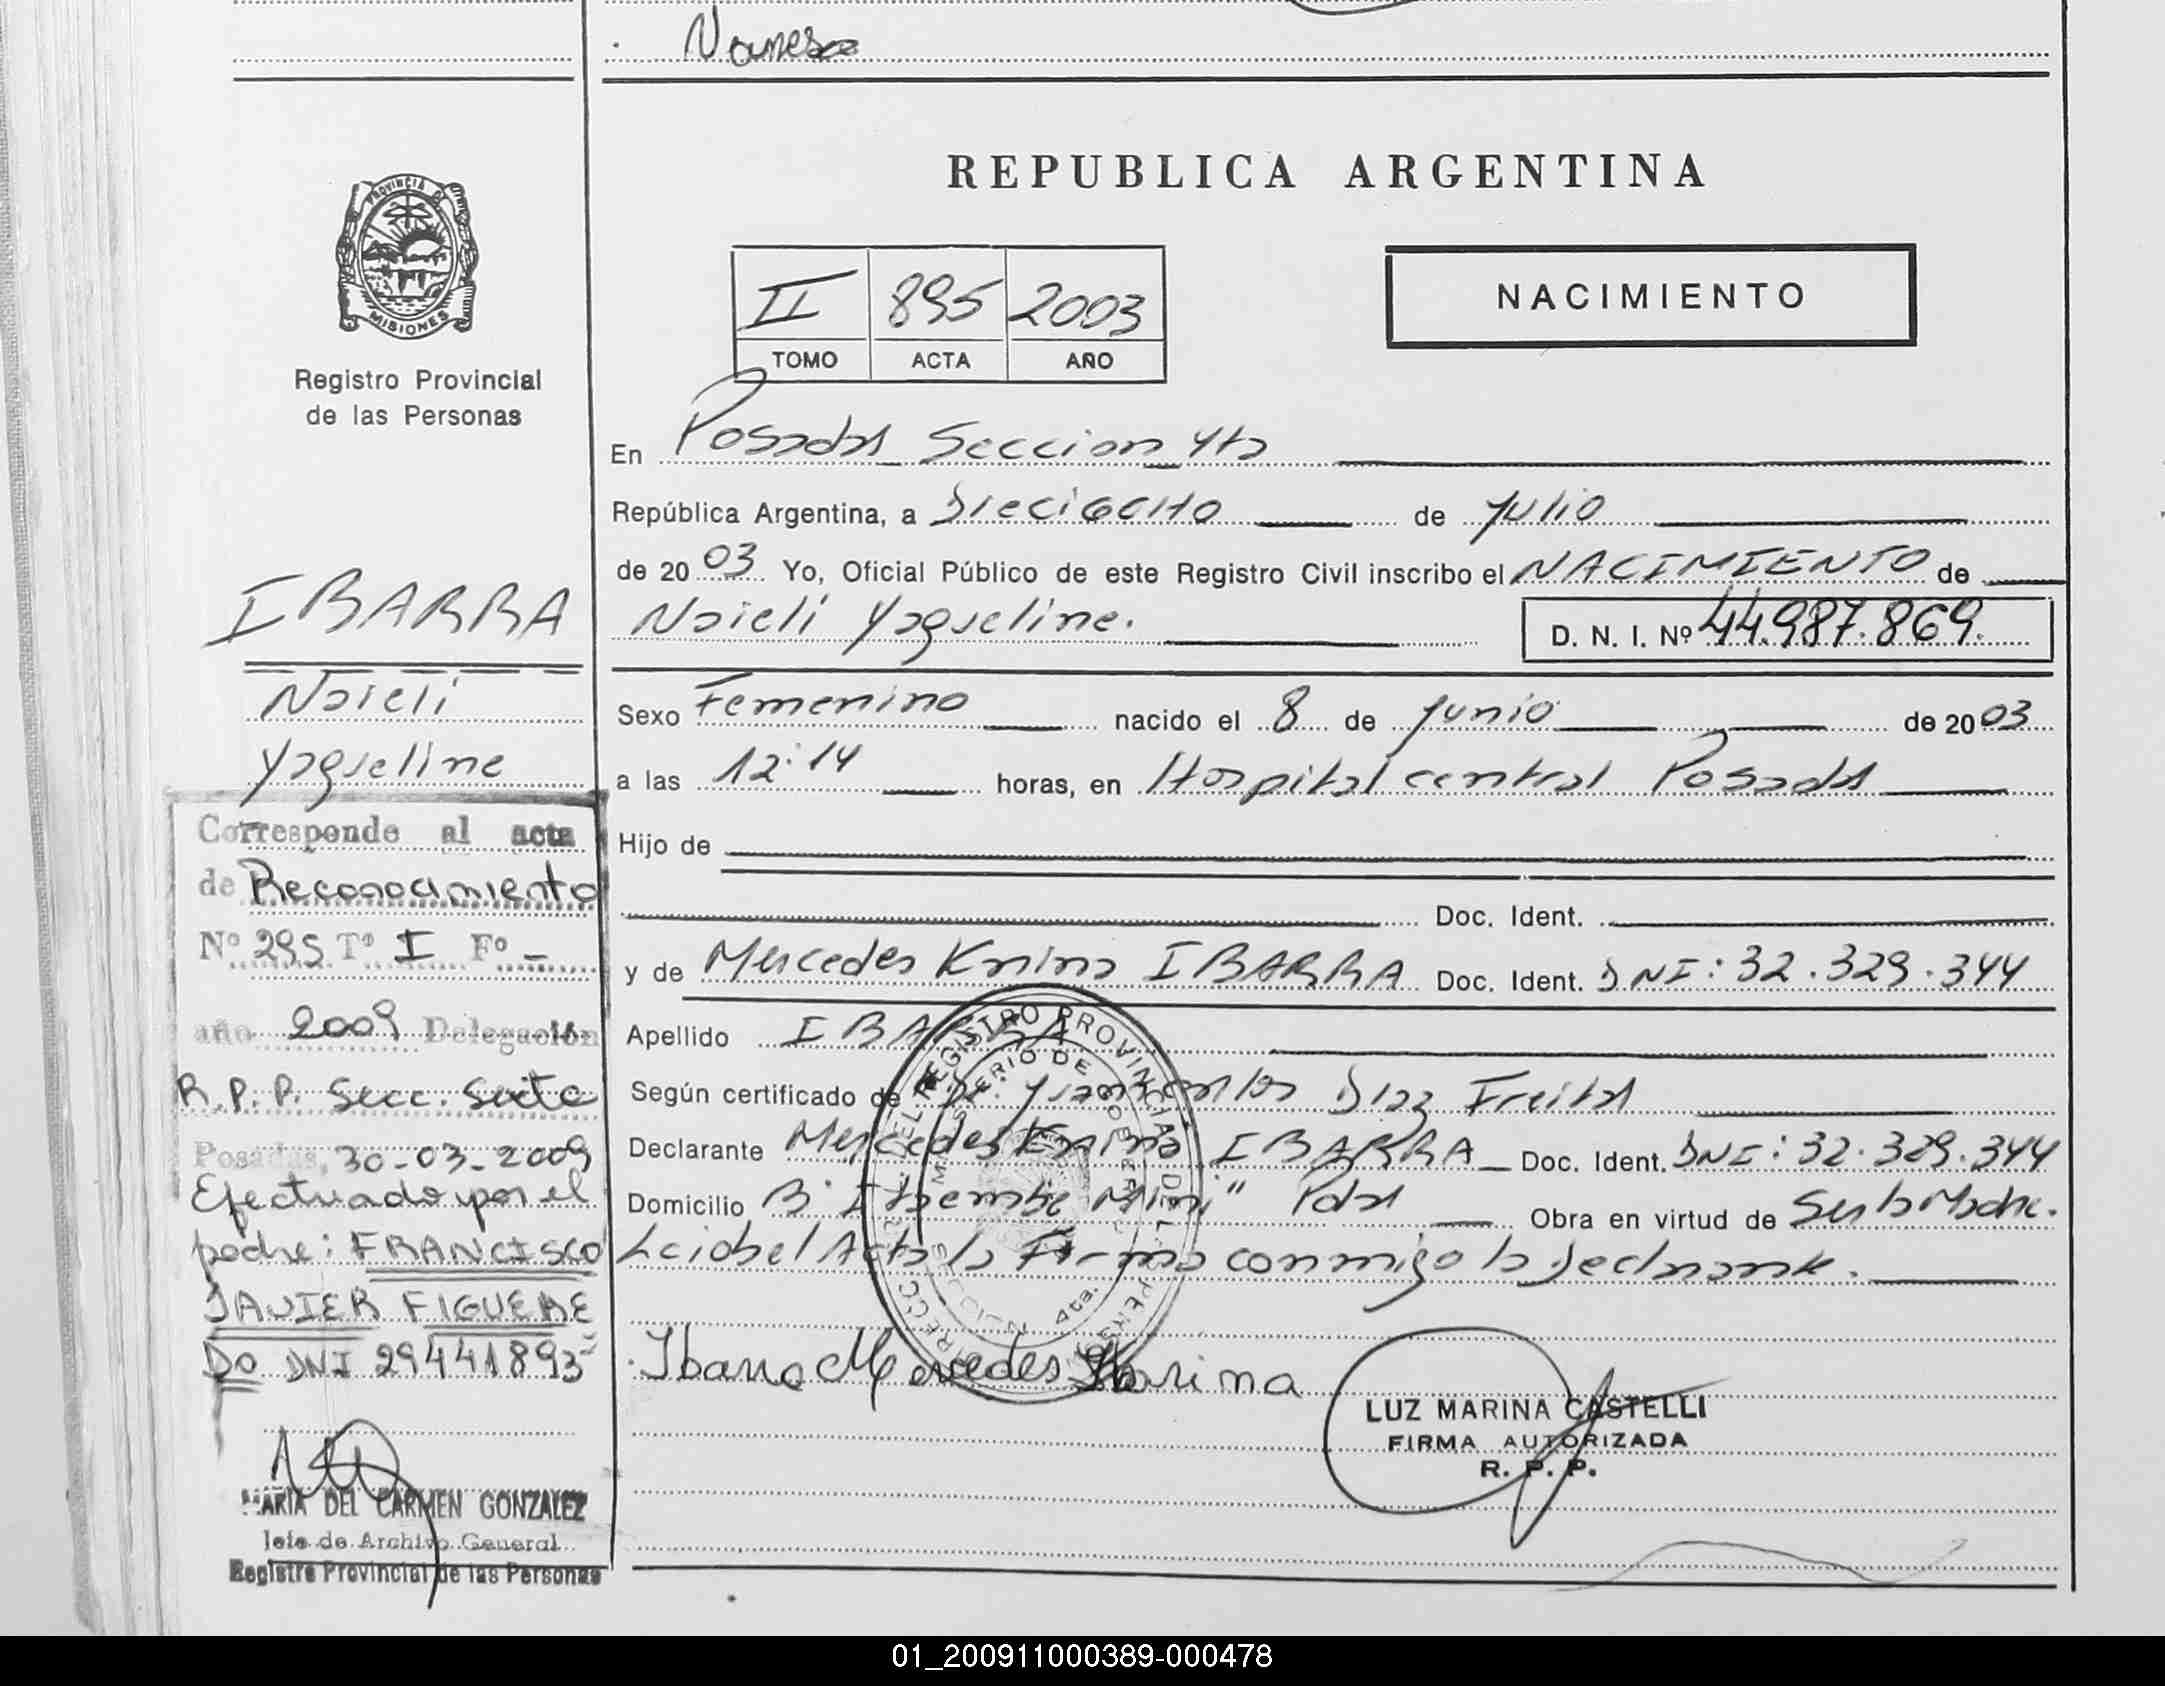 Vanesa
PROVINCIA DE
MISIONES
Registro Provincial
de las Personas
REPUBLICA ARGENTINA
II 895 2003
TOMO ACTA AÑO
NACIMIENTO
En Posadas Seccion 4ta
República Argentina, a Dieciocho de Julio
de 2003 Yo, Oficial Público de este Registro Civil inscribo el NACIMIENTO de
Naieli Yaqueline.
D. N. I. Nº 44.987.869.
Sexo Femenino nacido el 8 de Junio de 2003
a las 12:14 horas, en Hospital central Posadas
Hijo de
Doc. Ident.
y de Mercedes Karina IBARRA Doc. Ident. DNI: 32.329.344
Apellido IBARRA
Según certificado de Dr. Juan Carlos Diaz Freitas
Declarante Mercedes Karina IBARRA Doc. Ident. DNI: 32.329.344
Domicilio B° Itaembe Mini" Pdas Obra en virtud de Ser la Madre.
Leida el Acta la Firma conmigo la declarante.
Ibarra Mercedes Karina
LUZ MARINA CASTELLI
FIRMA AUTORIZADA
R. P. P.
IBARRA
Naieli
Yaqueline
Corresponde al acta
de Reconocimiento
Nº 295 Tº I Fº -
año 2009 Delegación
R.P.P. Secc. Sexta
Posadas, 30-03-2009
Efectuado por el
padre: FRANCISCO
JAVIER FIGUERE
DO DNI 29441893
MARIA DEL CARMEN GONZALEZ
Jefe de Archivo General
Registro Provincial de las Personas
01_200911000389-000478